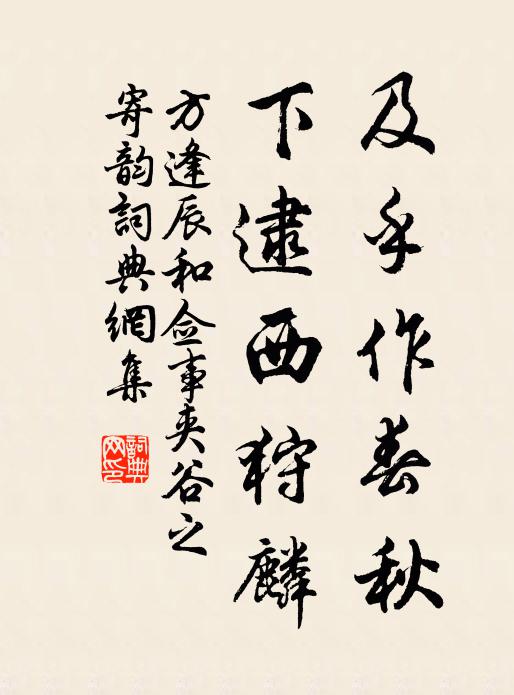 及乎作春秋
下逮西狩麟
方逢辰和佥事夹谷之
寄韵詞典網集
詞典网印